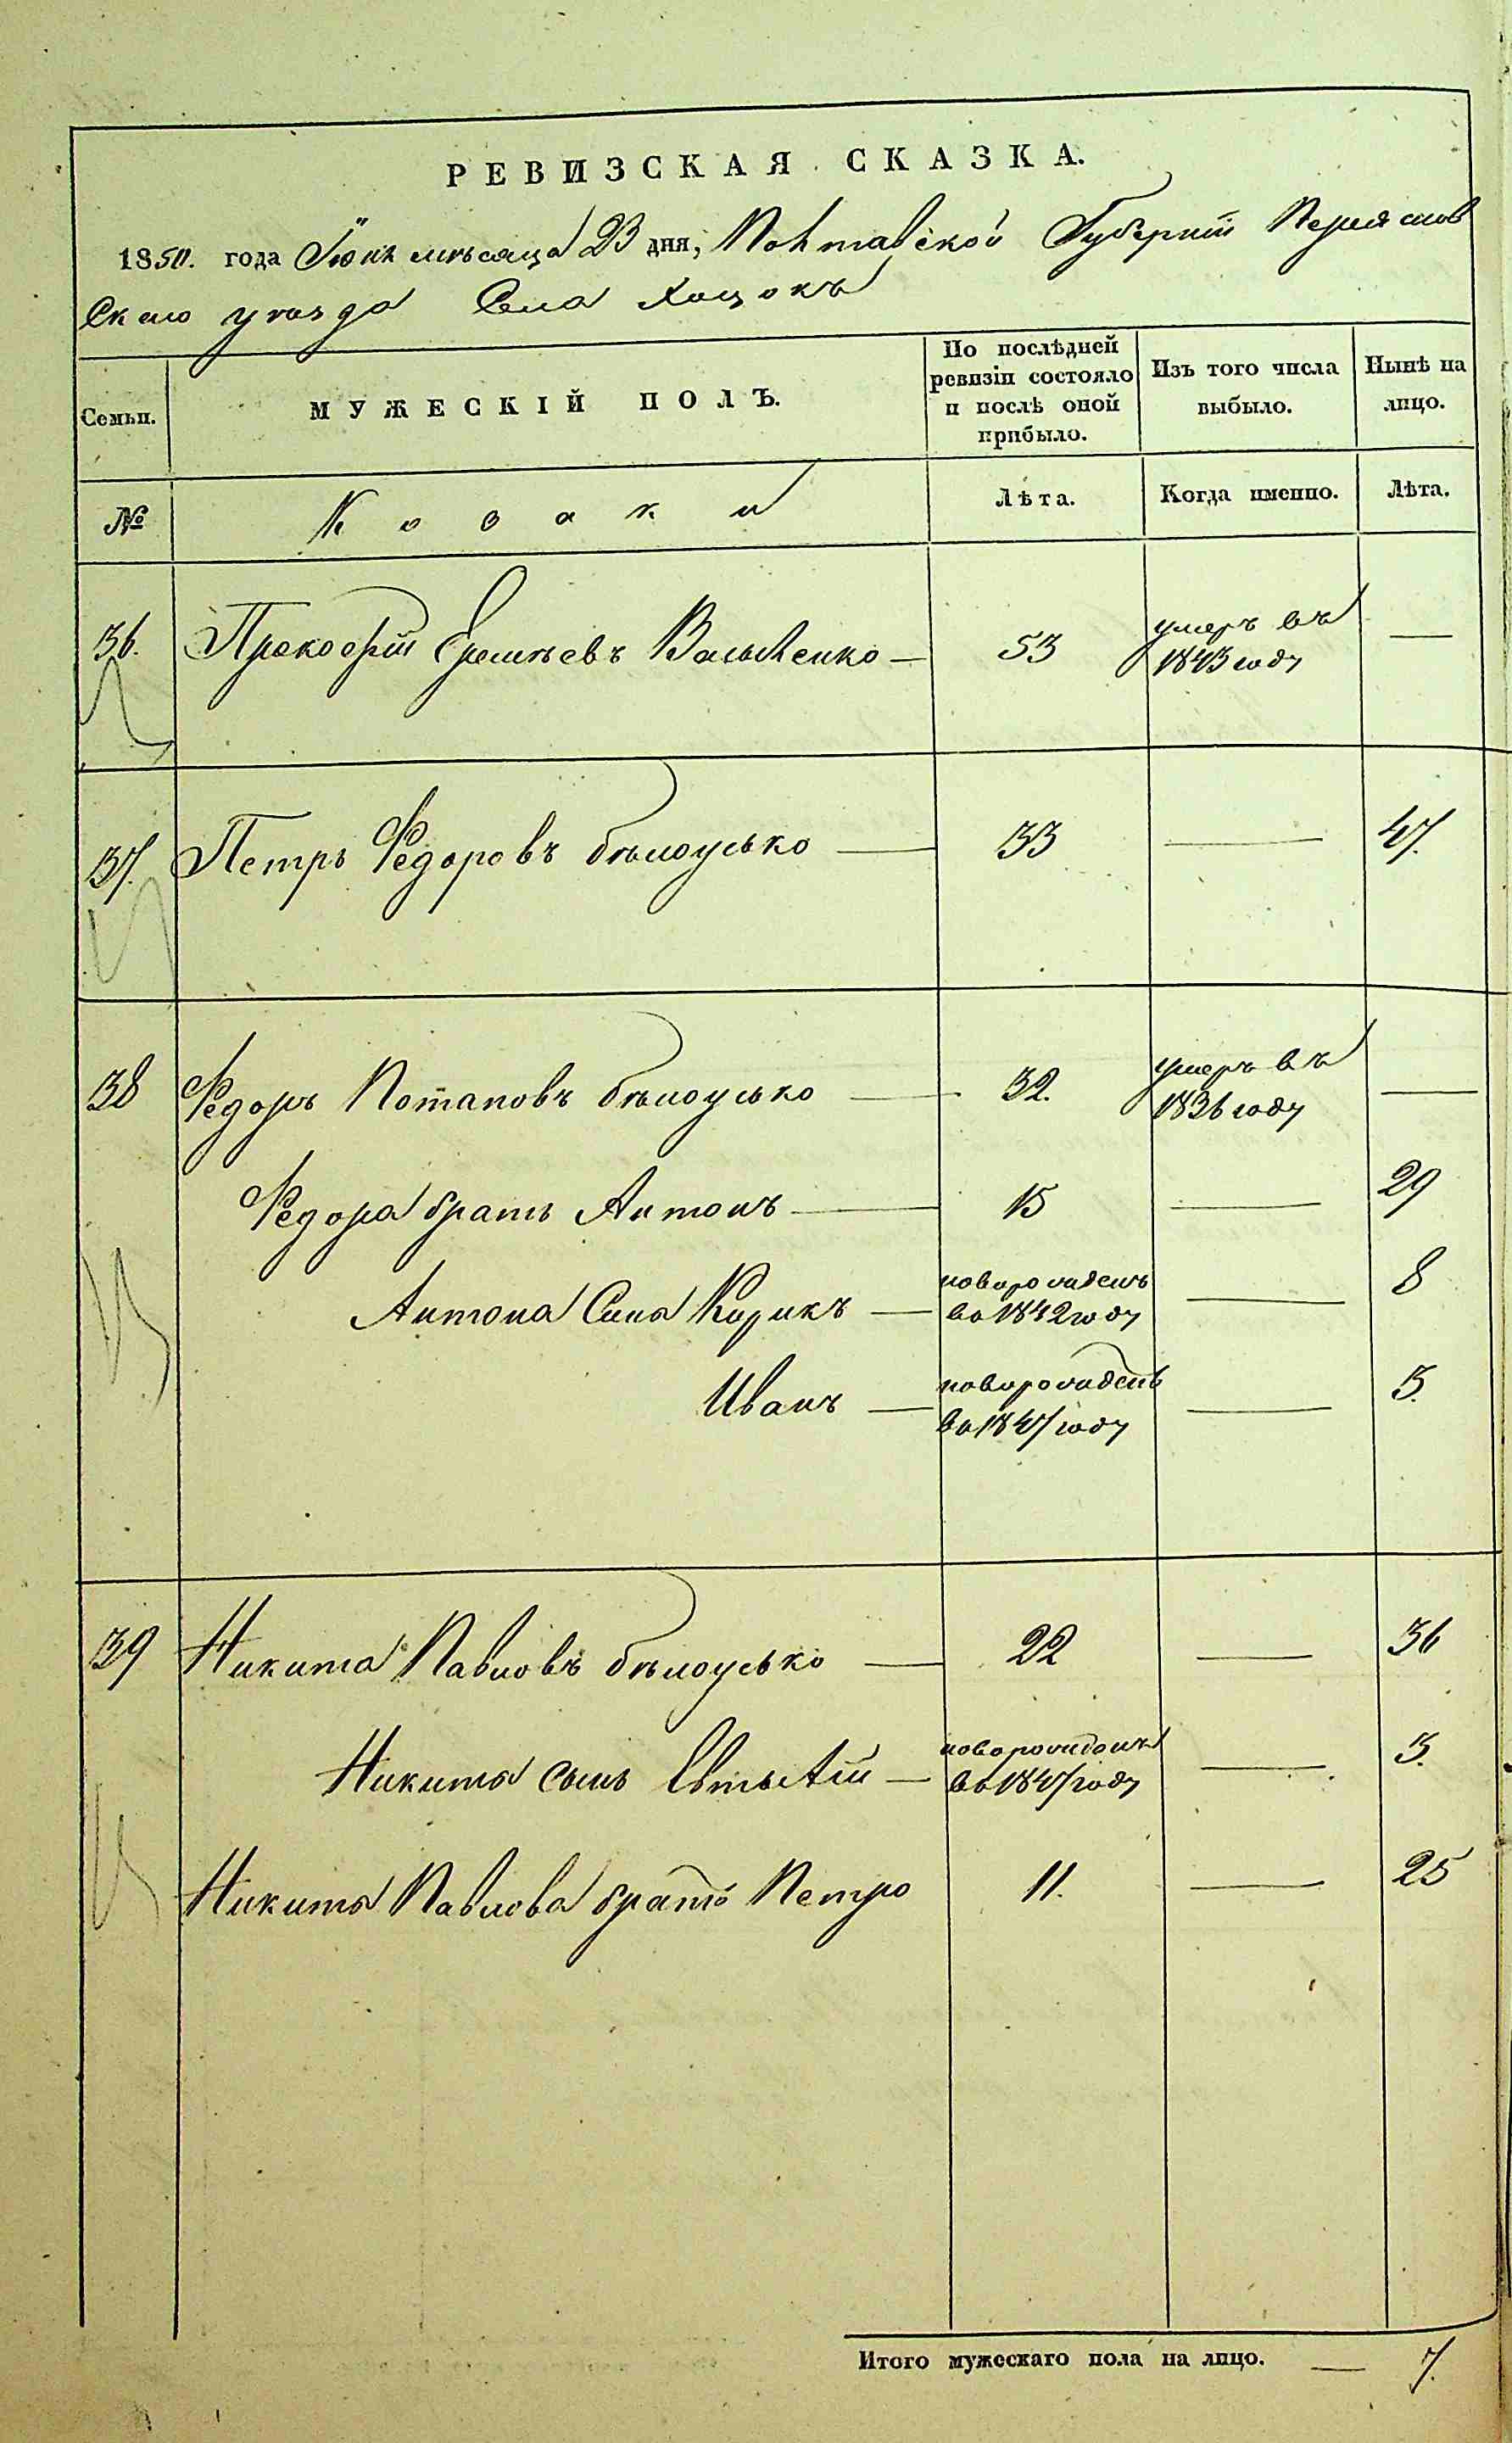 РЕВИЗСКАЯ СКАЗКА.
1850. года Іюнь мѣсяца 23 дня, Полтавской Губерніи Переяслов
Скаго уѣзда Села Хоцокъ
Семьи.
МУЖЕСКІЙ ПОЛЪ.
По послѣдней ревизіи состояло и послѣ оной прибыло.
Изъ того числа выбыло.
Нынѣ на лицо.
№
Козаки
Лѣта.
Когда именно.
Лѣта.
36. Прокофій Еремѣевъ Василенко — 53 умеръ въ 1843 году —
37. Петръ Федоровъ бѣлоусько — 33 — 47.
38 Федоръ Потаповъ бѣлоусько — 32. умеръ въ 1836 году —
Федора братъ Антонъ — 15 — 29
Антона Сина Кирикъ — новорожденъ во 1842 году — 8
Иванъ — новорожденъ во 1847 году — 3.
39 Никита Павловъ бѣлоусько — 22 — 36
Никиты сынъ — новорожденъ во 1847 году — 3.
Никиты Павлова братъ Петро 11. — 25
Итого мужескаго пола на лицо. — 7.